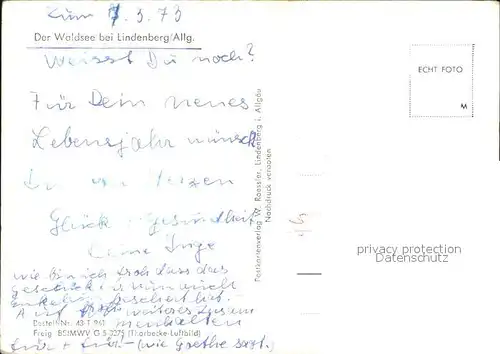 Zum 7.3.73
Der Waldsee bei Lindenberg/Allg.
Weisst Du noch?
Für Dein neues
Lebensjahr wünscht
Dir von Herzen
Glück + Gesundheit
Deine Inge
wie bin ich froh dass das
gescheitet ist.
A weiteres Zusam
menhalten
für + für – (wie Goethe sagt.)
Bestell-Nr. 43 T 961
Freig. BSMWV G 5 3275 (Thorbecke-Luftbild)
Postkartenverlag W. Roessler, Lindenberg i. Allgäu
Nachdruck verboten
ECHT FOTO
M
privacy protection
Datenschutz